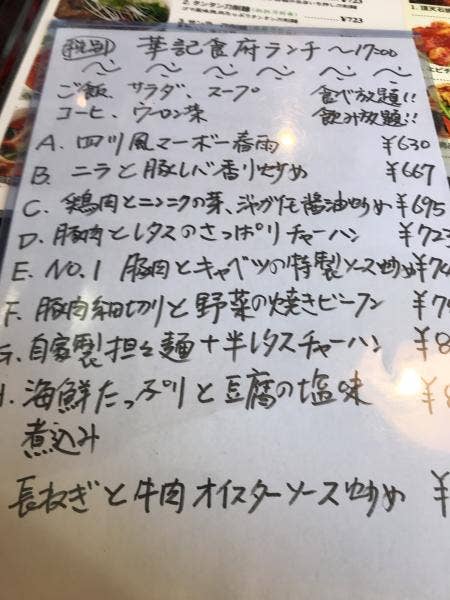 税別 華記食府ランチ ～17:00
ご飯、サラダ、スープ 食べ放題!!
コーヒ、ウーロン茶 飲み放題!!
A. 四川風マーボー春雨 ¥630
B. ニラと豚レバ香り炒め ¥667
C. 鶏肉とニンニクの菜、ジャガイモ醤油炒め ¥695
D. 豚肉とレタスのさっぱりチャーハン ¥723
E. NO.1 豚肉とキャベツの特製ソース炒め ¥74
F. 豚肉細切りと野菜の焼きビーフン ¥7
G. 自家製担々麺+半レタスチャーハン ¥8
H. 海鮮たっぷりと豆腐の塩味 ¥8
煮込み
長ねぎと牛肉オイスターソース炒め ¥
¥723